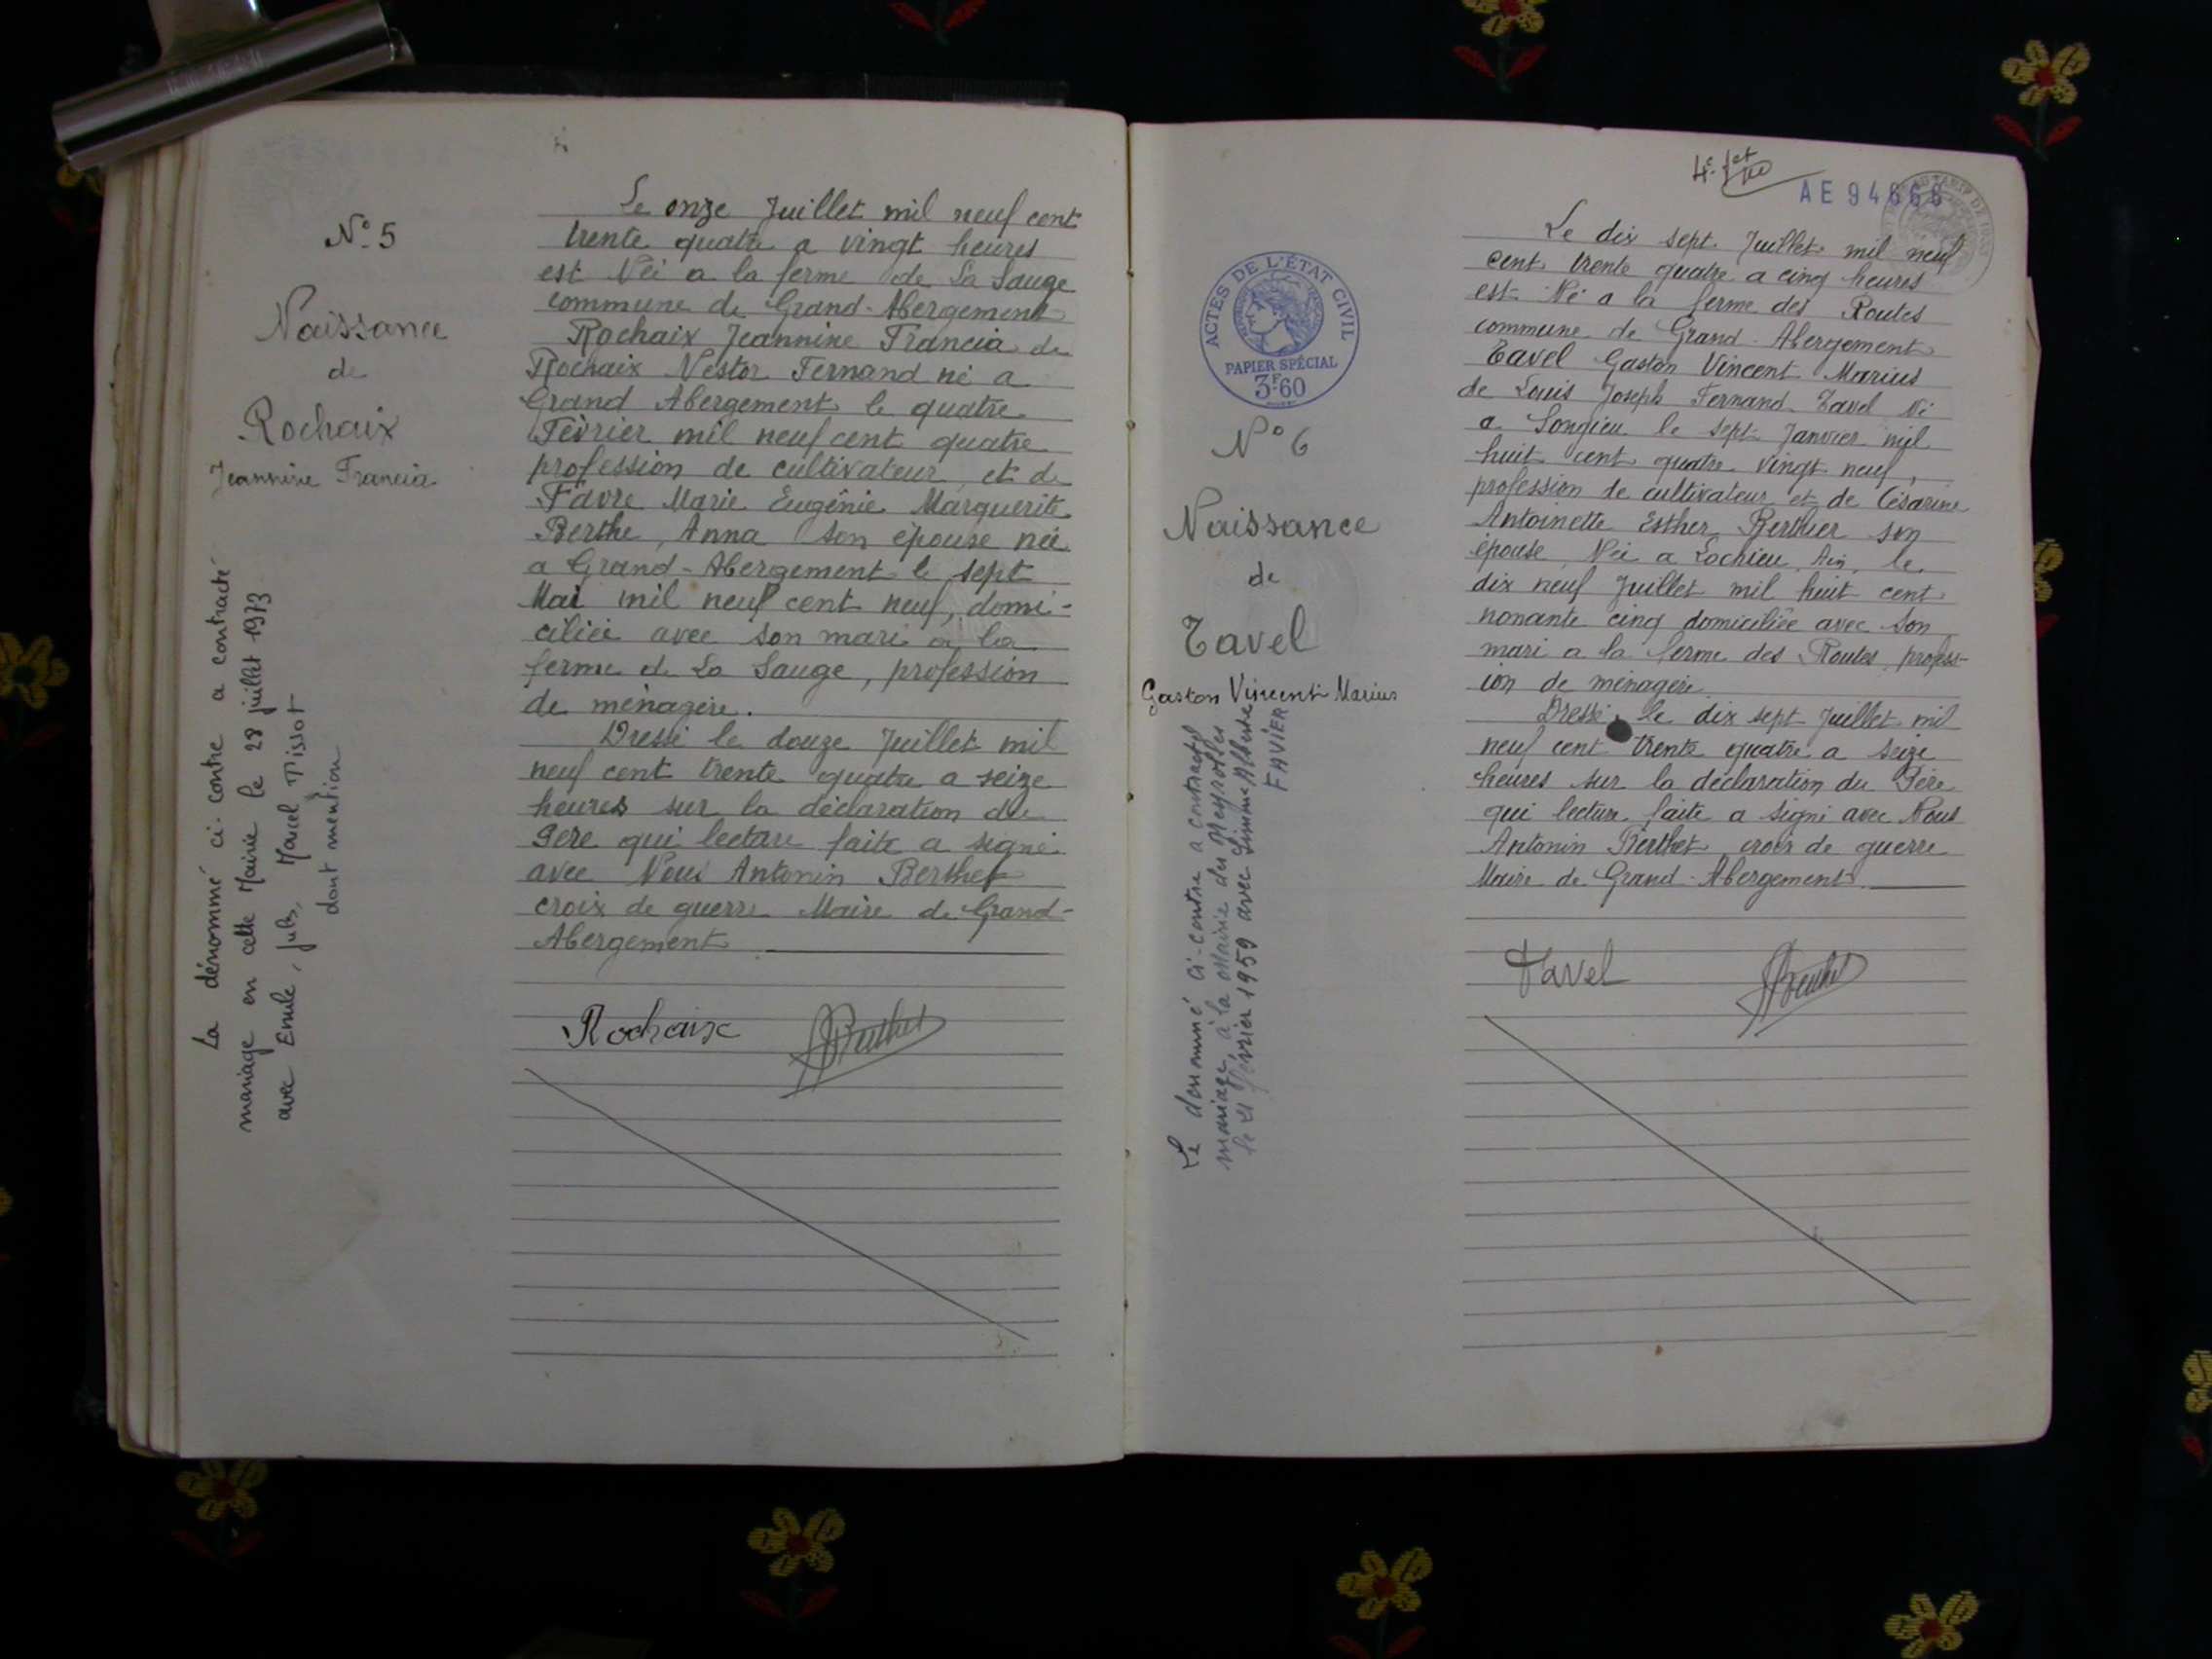 N° 5
Naissance
de
Rochaix
Jeannine Francia
La dénommé ci-contre a contracté
mariage en cette Mairie le 28 juillet 1973
avec Emile, Jules, Marcel Tissot
dont mention
Le onze Juillet mil neuf cent
trente quatre a vingt heures
est Née a la ferme de La Sauge
commune de Grand-Abergement
Rochaix Jeannine Francia de
Rochaix Nestor Fernand né a
Grand Abergement le quatre
Fevrier mil neuf cent quatre
profession de cultivateur et de
Favre Marie Eugènie Marguerite
Berthe, Anna son épouse née
a Grand-Abergement le sept
Mai mil neuf cent neuf, domi-
ciliée avec son mari a la
ferme de La Sauge, profession
de ménagère.
Dressé le douze Juillet mil
neuf cent trente quatre a seize
heures sur la déclaration du
Père qui lecture faite a signé
avec Nous Antonin Berthet
croix de guerre Maire de Grand-
Abergement
Rochaix
ABerthet
4e f et
AE 94666
ACTES DE L'ÉTAT CIVIL
PAPIER SPÉCIAL
3F60
N° 6
Naissance
de
Tavel
Gaston Vincent Marius
Le dénommé ci-contre a contracté
mariage à la Mairie du
le 21 février 1959 avec Simone, Alberte
FAVIER
Le dix sept Juillet mil neuf
cent trente quatre a cinq heures
est Né a la ferme des Routes
commune de Grand-Abergement
Tavel Gaston Vincent Marius
de Louis Joseph Fernand Tavel Né
a Songieu le sept Janvier mil
huit cent quatre vingt neuf,
profession de cultivateur et de Césarine
Antoinette Esther Berthier son
épouse Née a Lochieu, Ain, le
dix neuf Juillet mil huit cent
nonante cinq domiciliée avec son
mari a la ferme des Routes, profess-
ion de ménagère
Dressé le dix sept Juillet mil
neuf cent trente quatre a seize
heures sur la déclaration du Père
qui lecture faite a signé avec Nous
Antonin Berthet croix de guerre
Maire de Grand-Abergement
Tavel
ABerthet